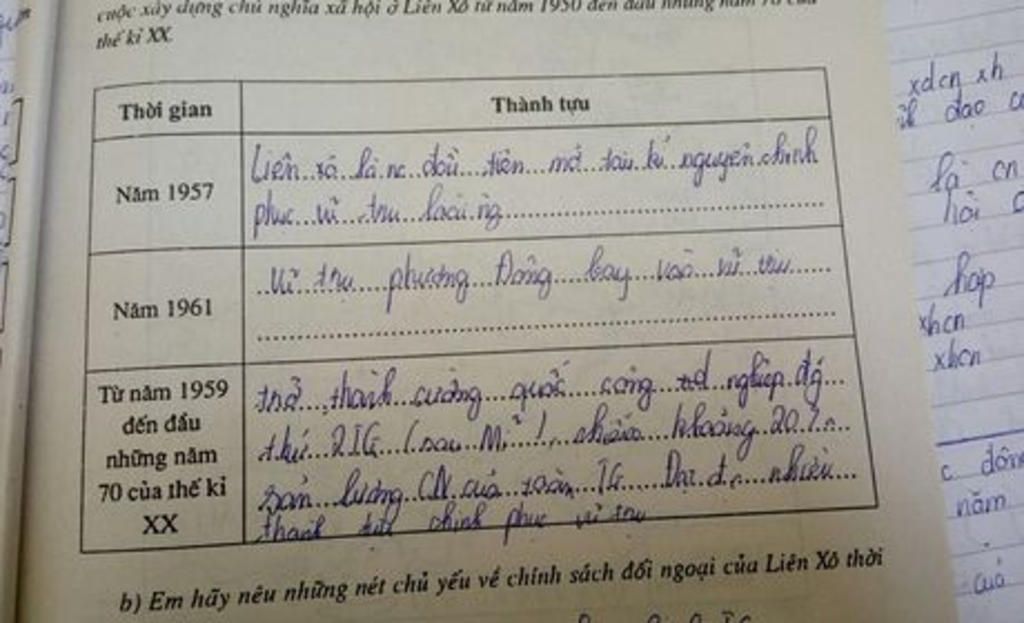 cuộc xây dựng chủ nghĩa xã hội ở Liên Xô từ năm 1950 đến đầu những năm 70 của
thế kỉ XX.
Thời gian
Thành tựu
Năm 1957
Liên xô là nc đầu tiên mở đầu kỉ nguyên chinh
phục vũ trụ loài ng
Năm 1961
Vũ trụ phương Đông bay vào vũ trụ
Từ năm 1959
đến đầu
những năm
70 của thế kỉ
XX
trở thành cường quốc công nghiệp đứ
thứ 2 TG (sau Mĩ), chiếm khoảng 20%
sản lượng CN của toàn TG. Đạt đc nhiều
thành tựu chinh phục vũ trụ
b) Em hãy nêu những nét chủ yếu về chính sách đối ngoại của Liên Xô thời
xdcn xh
đao
là cn
hội
hợp
xhcn
xhcn
c đông
năm
của